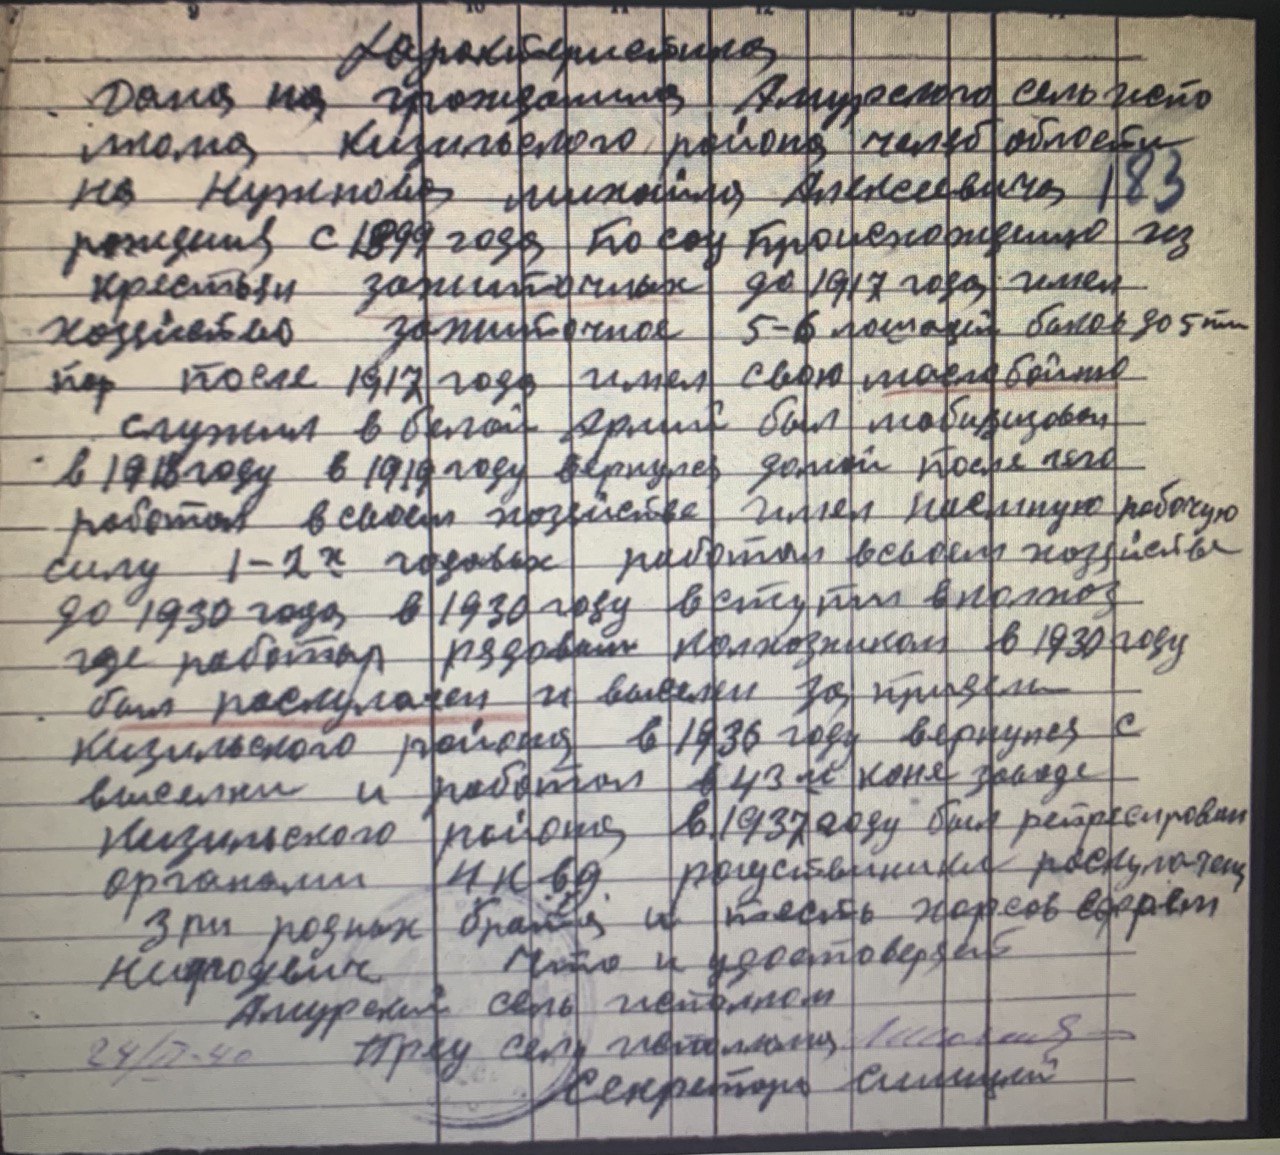 9 10 11 12 13
Характеристика
Дана на гражданина Амурского сельиспо
лкома Кизильского района челяб области
на Нужнова михаила Алексеевича 183
рождения с 1899 года По соц Происхождению из
крестьян зажиточных до 1917 года имел
хозяйство зажиточное 5-6 лошадей быков до 5ти
пар После 1917 года имел свою маслобойню
служил в белой Армий был мобизизован
в 1918 году в 1919 году вернулся домой После чего
работал всвоем хозяйстве имел наемную рабочую
силу 1-2х годовых работал всвоем хозяйстве
до 1930 года в 1930 году вступил вколхоз
где работал рядовым колхозником в 1930 году
был раскулачен и выселен за придел
Кизильского района в 1936 году вернулся с
выселки и работал в 43 м коне заводе
Кизильского района в 1937 году был репресирован
органами НКВД роцственики раскулачены
3 ри родных брата и тесть
Что и удостоверяет
Амурский сель исполком
24/II-40 Пред сель исполкома
Секретарь